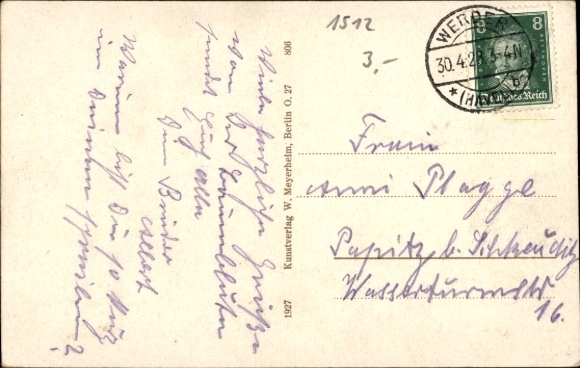 Viele herzliche Grüße
von der Baumblüte
sendet Euch allen
Dein Bruder
Albert
Warum bist Du so
im Deinem schreiben?
1927 Kunstverlag W. Meyerheim, Berlin O. 27 806
1512
3,-
WERDER
30.4.28. 3-4N
* (HAVEL) b
8 8
Deutsches Reich
Frau
Anni Plagge
Papitz b. Schkeuditz
16.